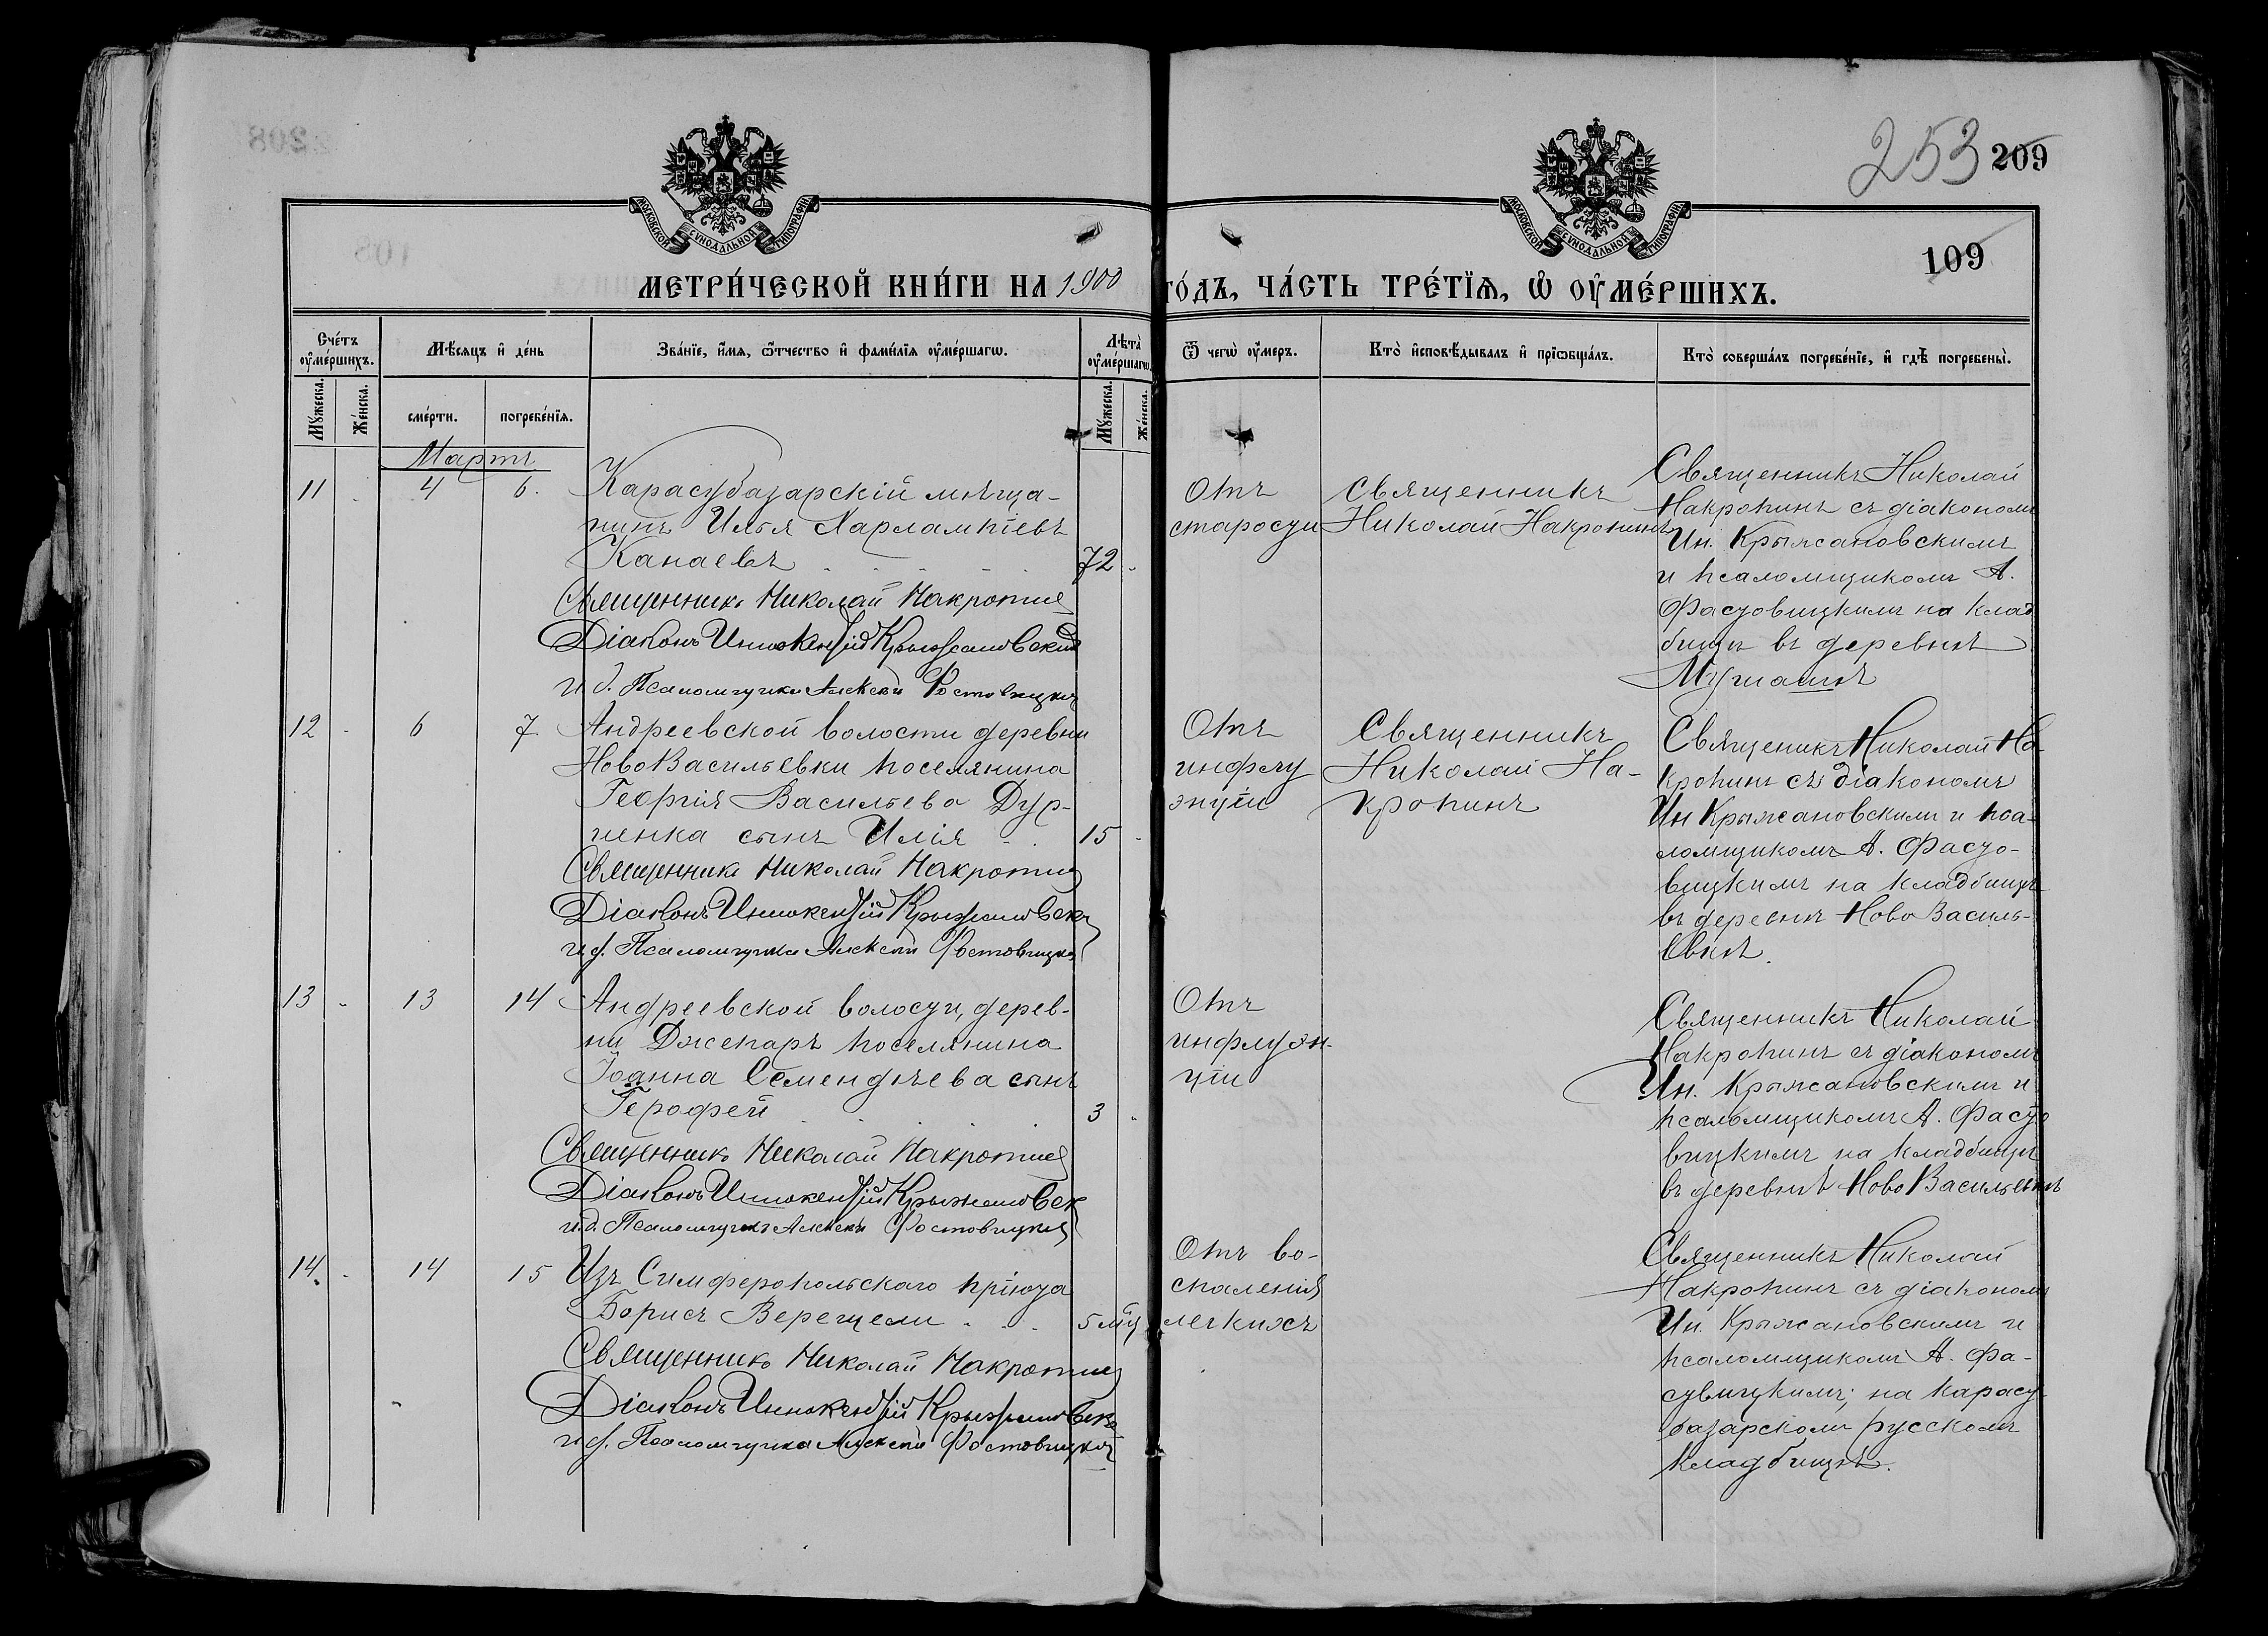 253 209
109
МОСКОВСКОЙ СУНОДАЛЬНОЙ ТИПОГРАФІИ
МОСКОВСКОЙ СУНОДАЛЬНОЙ ТИПОГРАФІИ
МЕТРИ́ЧЕСКОЙ КНИ́ГИ НА 1900 ГО́ДЪ, ЧА́СТЬ ТРЕ́ТЇѦ, Ѡ ОУ҆МЕ́РШИХЪ.
Сче́тъ оу҆ме́ршихъ.
Мѣ́сяцъ и҆ де́нь
Зва́нїе, и҆́мя, ѻ҆́тчество и҆ фами́лїя оу҆ме́ршагѡ.
Лѣта̀ оу҆ме́ршагѡ.
Ѿ чегѡ̀ оу҆́меръ.
Кто̀ и҆сповѣ́дывалъ и҆ прїѡбща́лъ.
Кто̀ соверша́лъ погребе́нїе, и҆ гдѣ̀ погребены̀.
Му́жеска.
Же́нска.
сме́рти.
погребе́нїя.
Му́жеска.
Же́нска.
Мартъ
11 4 6.
Карасубазарскій мѣща-
нинъ Илья Харлампіевъ
Канаевъ 72
Священникъ Николай Накропинъ
Діаконъ Иннокентій Крыжановскій
и д. Псаломщика Алексѣй Фостовицкій
Отъ
старости
Священникъ
Николай Накропинъ
Священникъ Николай
Накропинъ съ діакономъ
Ин. Крыжановскимъ
и псаломщикомъ А.
Фастовицкимъ на клад
бищѣ въ деревнѣ
12 6 7.
Андреевской волости деревни
НовоВасильевки поселянина
Георгія Васильева Дур-
ненка сынъ Илія 15
Священникъ Николай Накропинъ
Діаконъ Иннокентій Крыжановскій
и д. Псаломщика Алексѣй Фостовицкій
Отъ
инфлу
энціи
Священникъ
Николай На-
кропинъ
Священикъ Николай На-
кропинъ съ діакономъ
Ин Крыжановскимъ и пса-
ломщикомъ А. Фасто-
вицкимъ на кладбищѣ
въ деревнѣ Ново Василь-
евкѣ.
13 13 14
Андреевской волости, дерев-
ни поселянина
Іоанна Семендяева сынъ
Герофей 3
Священникъ Николай Накропинъ
Діаконъ Иннокентій Крыжановск
и.д. Псаломщика Алексѣй Фостовицкій
Отъ
инфлуэн-
ціи
Священникъ Николай
Накропинъ съ діакономъ
Ин. Крыжановскимъ и
псаломщикомъ А. Фасто
вицкимъ на кладбищѣ
въ деревнѣ Ново Васильевкѣ
14. 14 15
Изъ Симферопольскаго пріюта
Борисъ 5 мц
Священникъ Николай Накропинъ
Діаконъ Иннокентій Крыжановскі
и д. Псаломщика Алексѣй Фостовицкій
Отъ во-
спаленія
легкихъ
Священникъ Николай
Накропинъ съ діакономъ
Ин. Крыжановскимъ и
псаломщикомъ А. Фа-
стовицкимъ; на Карасу-
базарскомъ русскомъ
кладбищѣ.